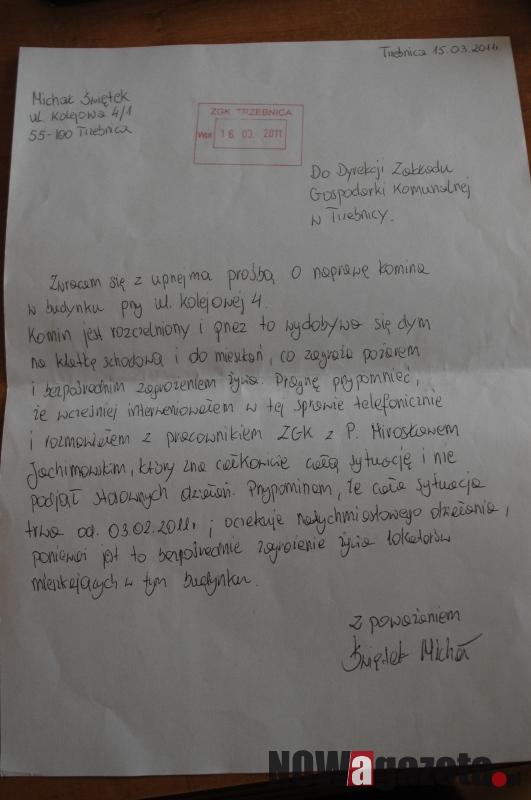 Trzebnica 15.03.2011r
Michał Świętek
ul. Kolejowa 4/1
55-100 Trzebnica
ZGK TRZEBNICA
Wpł. 16. 03. 2011
Do Dyrekcji Zakładu
Gospodarki Komunalnej
w Trzebnicy.
Zwracam się z uprzejma prośbą o naprawę komina
w budynku przy ul. Kolejowej 4.
Komin jest rozcielniony i przez to wydobywa się dym
na klatkę schodową i do mieszkań, co zagraża pożarem
i bezpośrednim zagrożeniem życia. Pragnę przypomnieć,
że wcześniej interweniowałem w tej sprawie telefonicznie
i rozmawiałem z pracownikiem ZGK z P. Mirosławem
Jachimowskim, który zna całkowicie całą sytuację i nie
podjął stosownych działań. Przypominam, że cała sytuacja
trwa od 03.02.2011r i oczekuje natychmiastowego działania,
ponieważ jest to bezpośrednie zagrożenie życia lokatorów
mieszkających w tym budynku.
Z poważaniem
Świętek Michał
NOWagazeta.